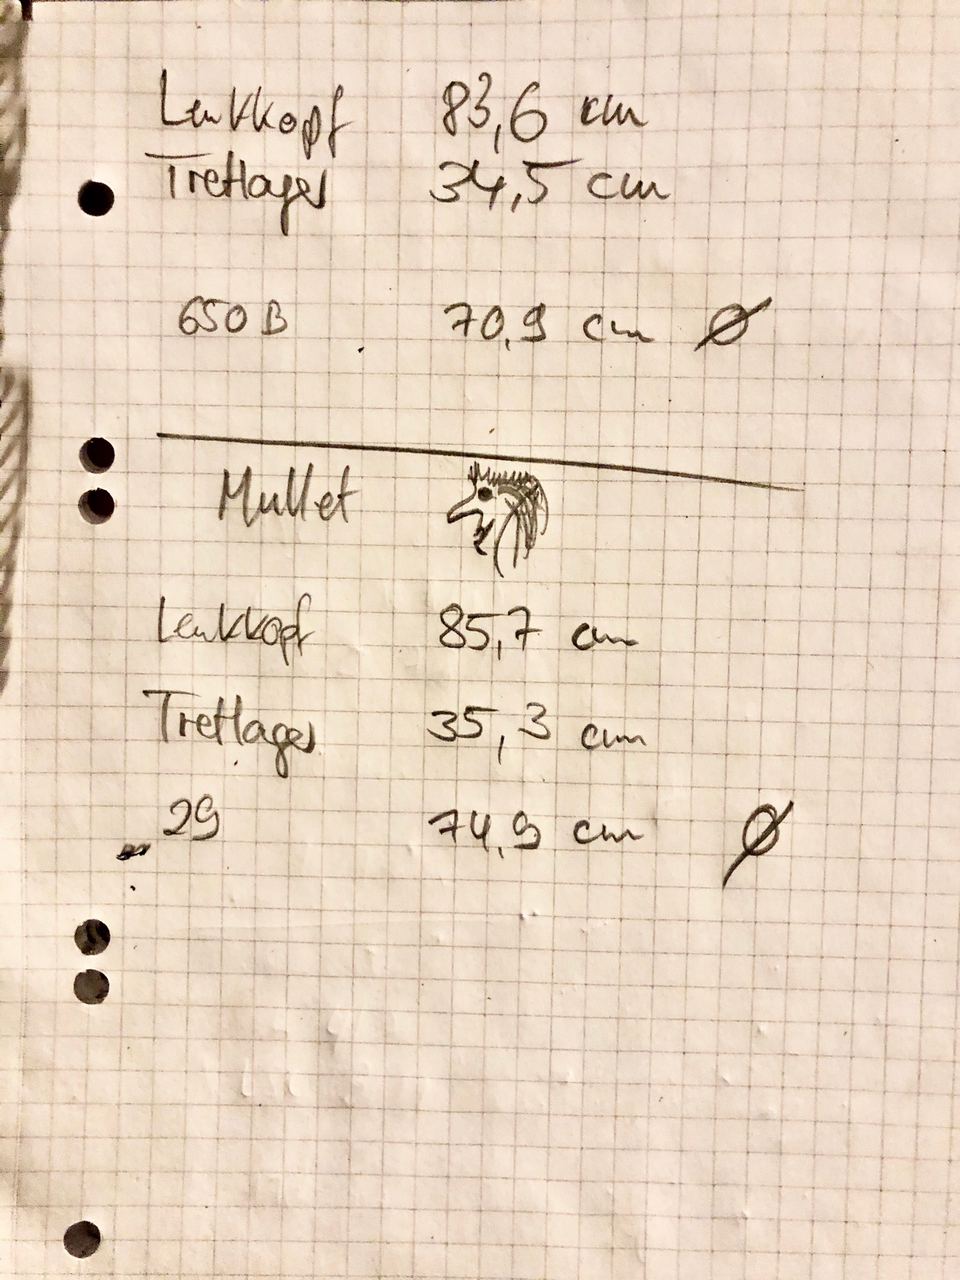 Lenkkopf 83,6 cm
Tretlager 34,5 cm
650B 70,9 cm Ø
Mullet
Lenkkopf 85,7 cm
Tretlager 35,3 cm
29 74,9 cm Ø